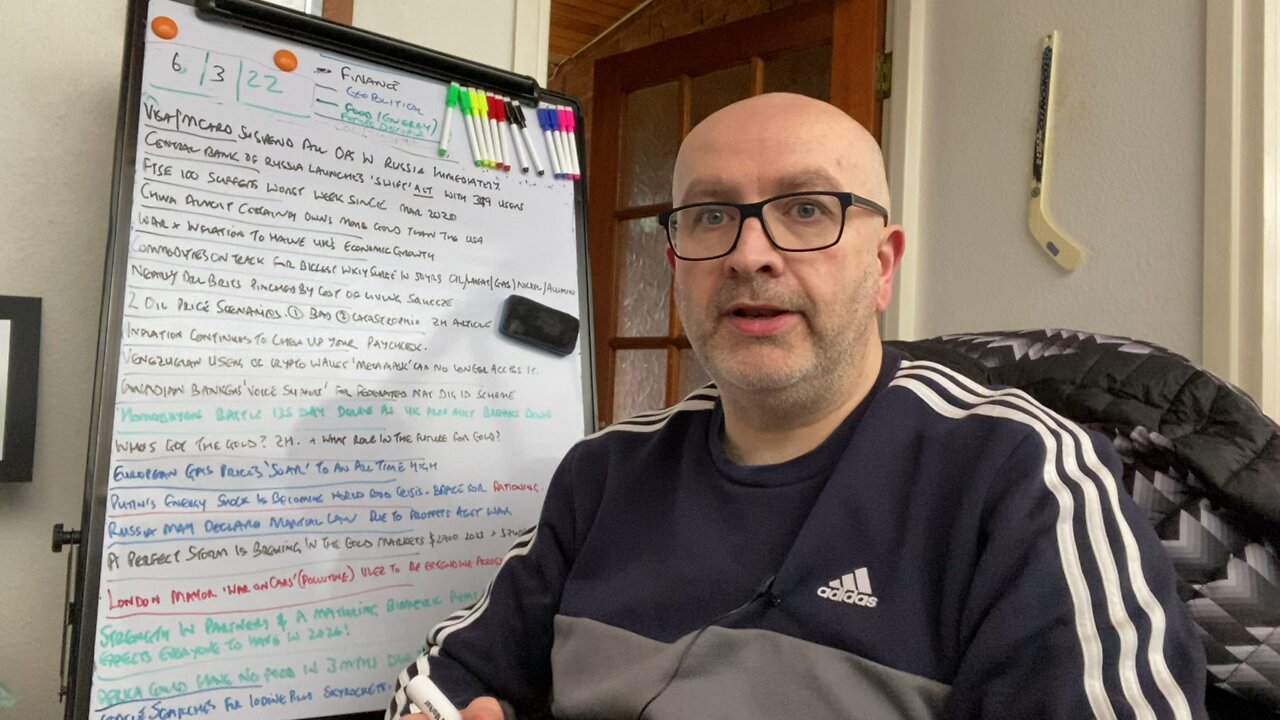 6/3/22
FINANCE
GEOPOLITICAL
FOOD/ENERGY/
FUTURE
VISA/MCARD SUSPEND ALL OPS IN RUSSIA IMMEDIATELY
CENTRAL BANK OF RUSSIA LAUNCHES 'SWIFT' ALT WITH 399 USERS
FTSE 100 SUFFERS WORST WEEK SINCE MAR 2020
CHINA ALMOST CERTAINLY OWNS MORE GOLD THAN THE USA
WAR + INFLATION TO HALVE UK'S ECONOMIC GROWTH
COMMODITIES ON TRACK FOR BIGGEST WKLY SURGE IN 50YRS OIL/WHEAT/GAS/NICKEL/ALUMINIUM
NEARLY ALL BRITS PINCHED BY COST OF LIVING SQUEEZE
2 OIL PRICE SCENARIOS. ① BAD ② CATASTROPHIC ZH ARTICLE
INFLATION CONTINUES TO CHEW UP YOUR PAYCHECK.
VENEZUELAN USERS OF CRYPTO WALLET 'METAMASK' CAN NO LONGER ACCESS IT.
CANADIAN BANKERS 'VOICE SUPPORT' FOR FEDERATED NAT DIG ID SCHEME
HOMEBUYERS BATTLE 135 DAY DELAYS AS UK BREAKS DOWN
WHO'S GOT THE GOLD? ZH. + WHAT ROLE IN THE FUTURE FOR GOLD?
EUROPEAN GAS PRICES 'SOAR' TO AN ALL TIME HIGH
PUTIN'S ENERGY SHOCK IS BECOMING WORLD FOOD CRISIS. BRACE FOR RATIONING.
RUSSIA MAY DECLARE MARTIAL LAW DUE TO PROTESTS AGST WAR
A PERFECT STORM IS BREWING IN THE GOLD MARKETS
LONDON MAYOR 'WAR ON CARS' (POLLUTING) ULEZ TO BE EXTENDING ACROSS
STRENGTH IN PARTNERS & A MATURING BIOMETRIC
EXPECTS EVERYONE TO HAVE IN 2026!
AFRICA COULD HAVE NO FOOD IN 3 MTHS DUE
SEARCHES FOR IODINE PILLS SKYROCKETS.
adidas